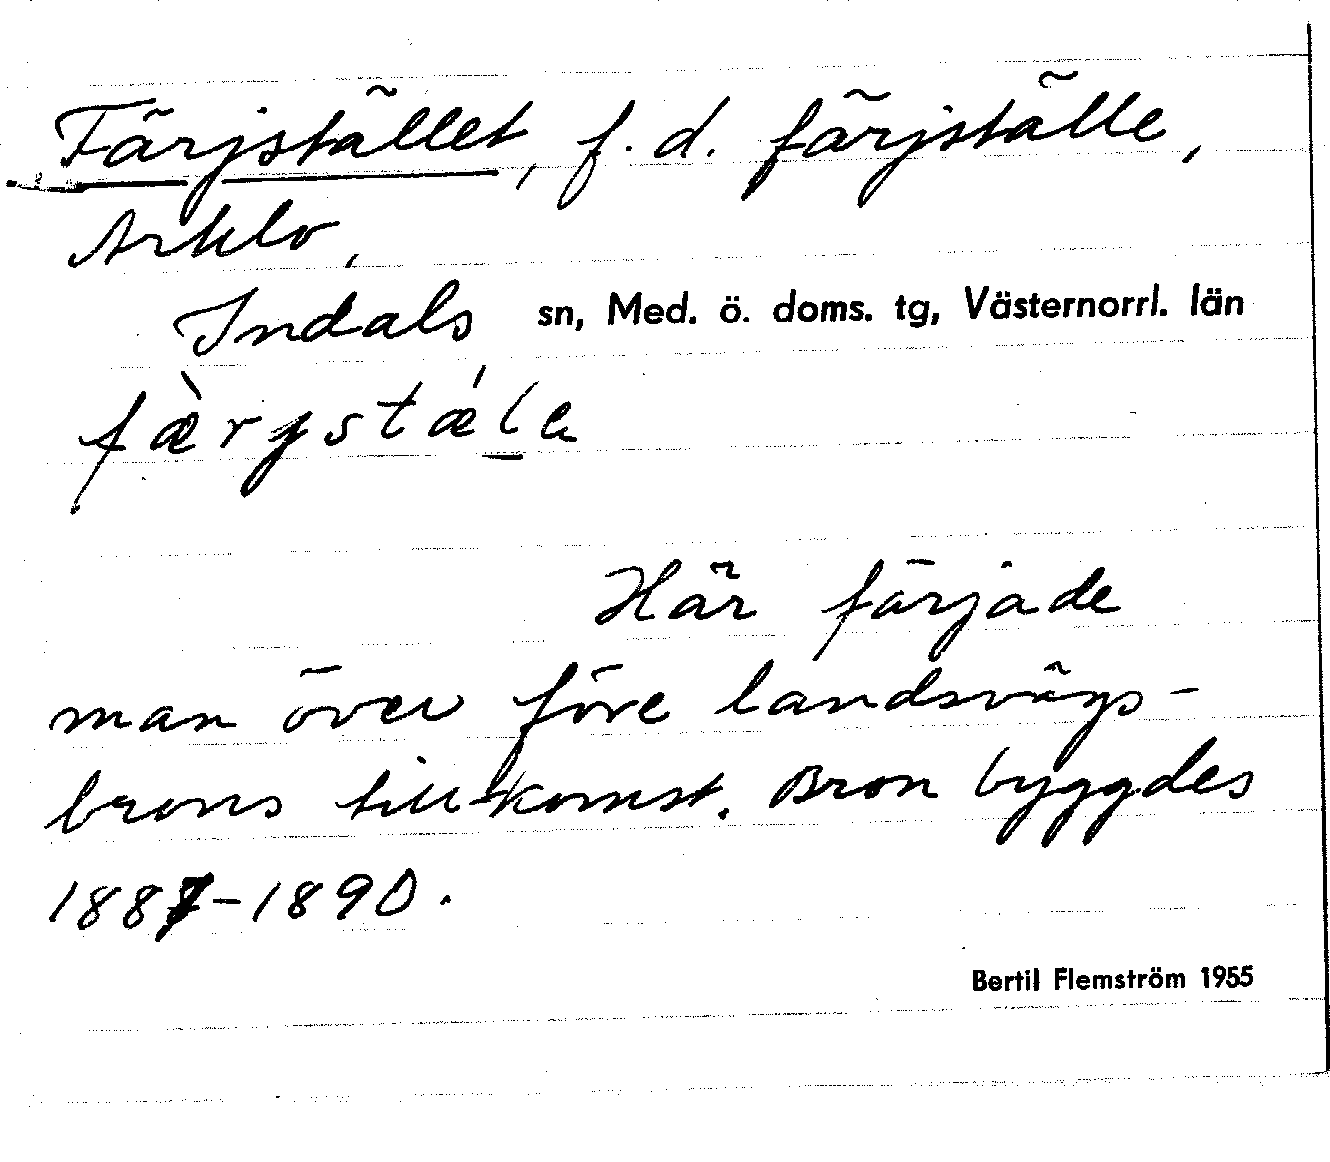 Färjstället, f.d. färjställe,
Arklo,
Indals sn, Med. ö. doms. tg, Västernorrl. län
fæ̀rjstǽle
Här färjade
man över före landsvägs-
brons tillkomst. Bron byggdes
1887-1890.
Bertil Flemström 1955